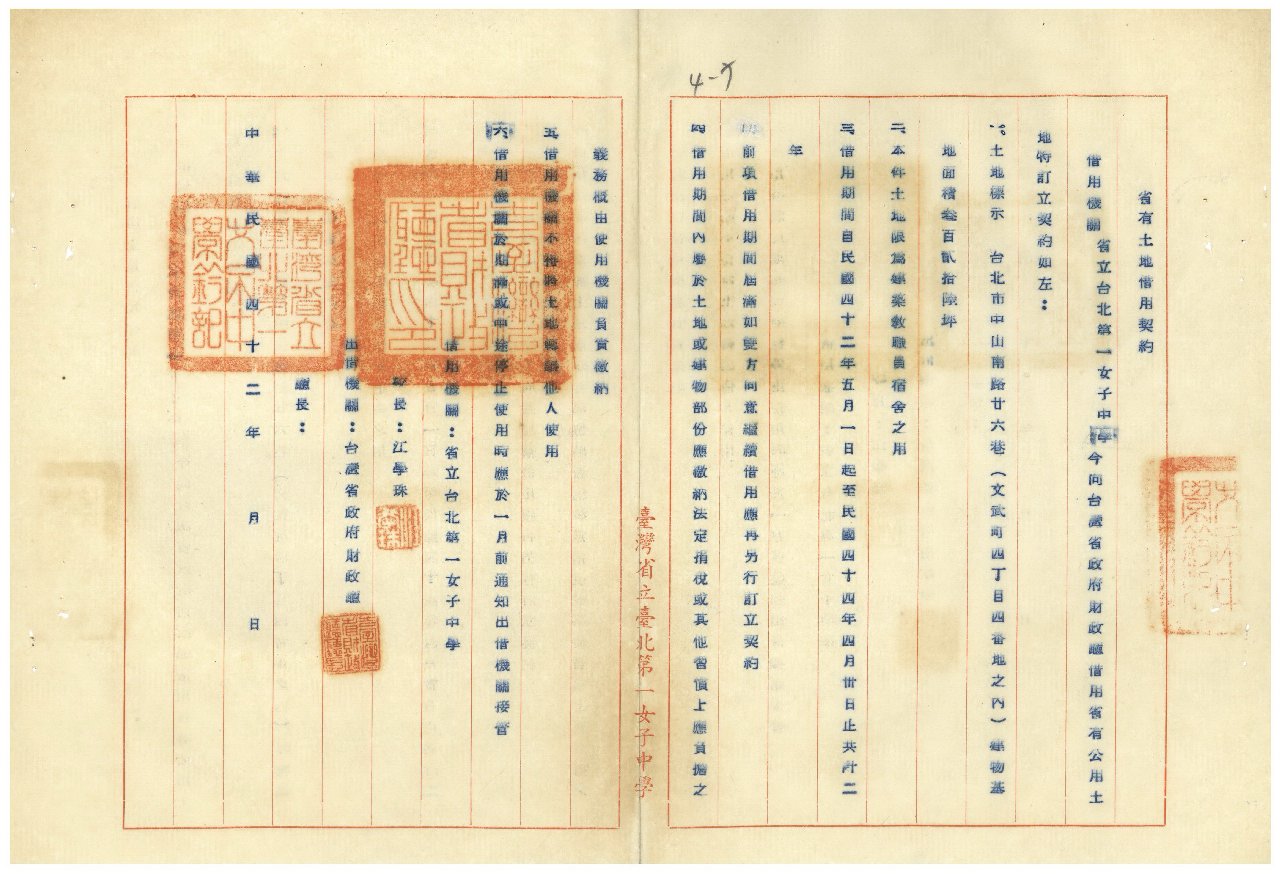 4-5
省有土地借用契約
借用機關 省立台北第一女子中學今向台灣省政府財政廳借用省有公用土
地特訂立契約如左：
一、土地標示 台北市中山南路廿六巷（文武町四丁目四番地之內）建物基
地面積叁百貳拾陸坪
二、本件土地限爲建築敎職員宿舍之用
三、借用期間自民國四十二年五月一日起至民國四十四年四月卅日止共計二
年
前項借用期間屆滿如雙方同意繼續借用應再另行訂立契約
四、借用期間內對於土地或建物部份應繳納法定捐稅或其他習慣上應負擔之
義務概由使用機關負責繳納
五、借用機關不得將土地轉讓他人使用
六、借用機關於期滿或中途停止使用時應於一月前通知出借機關接管
借用機關：省立台北第一女子中學
校長：江學珠
出借機關：台灣省政府財政廳
廳長：
中華民國四十二年 月 日
臺灣省立臺北第一女子中學
臺灣省立
臺北第一
女子中
學鈐記